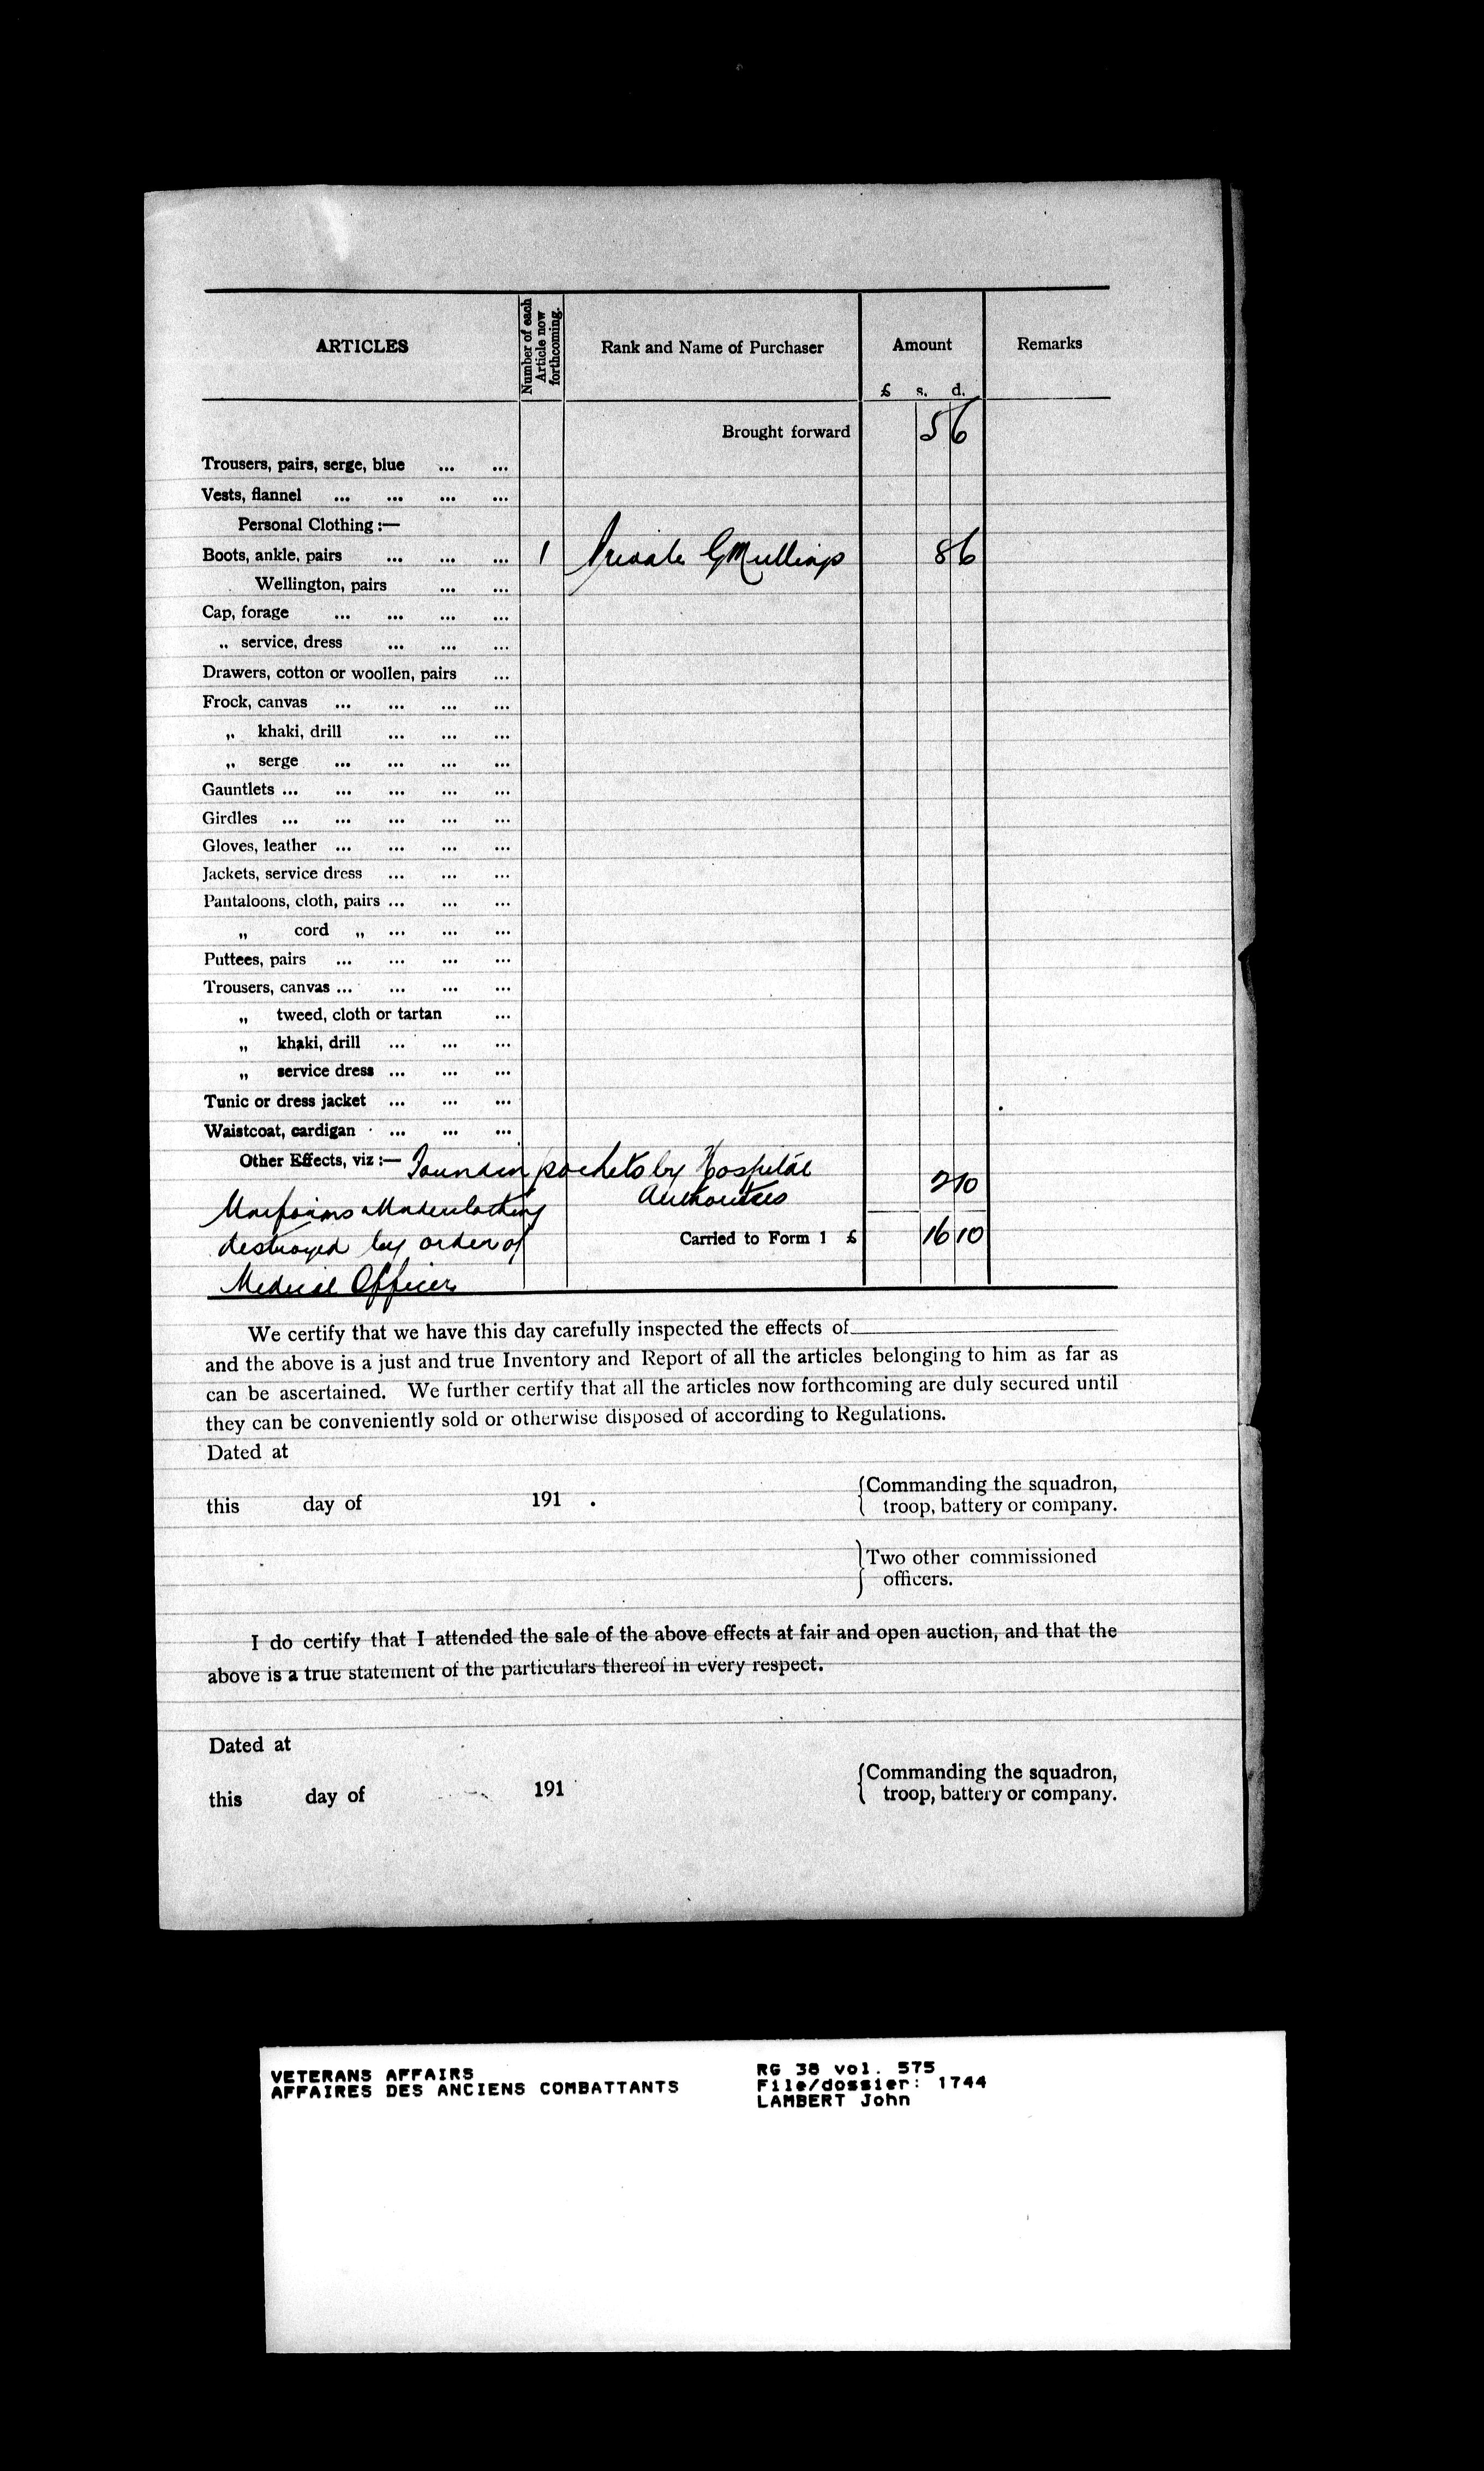 ARTICLES
Number of each Article now forthcoming.
Rank and Name of Purchaser
Amount
Remarks
£ s. d.
Brought forward 5 6
Trousers, pairs, serge, blue ... ...
Vests, flannel ... ... ... ...
Personal Clothing :—
Boots, ankle, pairs ... ... ... 1 Private G Mullings 8 6
Wellington, pairs ... ...
Cap, forage ... ... ... ...
„ service, dress ... ... ...
Drawers, cotton or woollen, pairs ...
Frock, canvas ... ... ... ...
„ khaki, drill ... ... ...
„ serge ... ... ... ...
Gauntlets ... ... ... ... ...
Girdles ... ... ... ... ...
Gloves, leather ... ... ... ...
Jackets, service dress ... ... ...
Pantaloons, cloth, pairs ... ... ...
„ cord „ ... ... ...
Puttees, pairs ... ... ... ...
Trousers, canvas ... ... ... ...
„ tweed, cloth or tartan ...
„ khaki, drill ... ... ...
„ service dress ... ... ...
Tunic or dress jacket ... ... ...
Waistcoat, cardigan ... ... ...
Other Effects, viz :— Found in pockets by Hospital
Authorities 2 10
Uniforms & Underclothing
destroyed by order of
Carried to Form 1 £ 16 10
Medical Officer
We certify that we have this day carefully inspected the effects of
and the above is a just and true Inventory and Report of all the articles belonging to him as far as
can be ascertained. We further certify that all the articles now forthcoming are duly secured until
they can be conveniently sold or otherwise disposed of according to Regulations.
Dated at
this day of 191 .
{Commanding the squadron,
troop, battery or company.
}Two other commissioned
officers.
I do certify that I attended the sale of the above effects at fair and open auction, and that the
above is a true statement of the particulars thereof in every respect.
Dated at
this day of 191
{Commanding the squadron,
troop, battery or company.
VETERANS AFFAIRS
AFFAIRES DES ANCIENS COMBATTANTS
RG 38 vol. 575
File/dossier: 1744
LAMBERT John